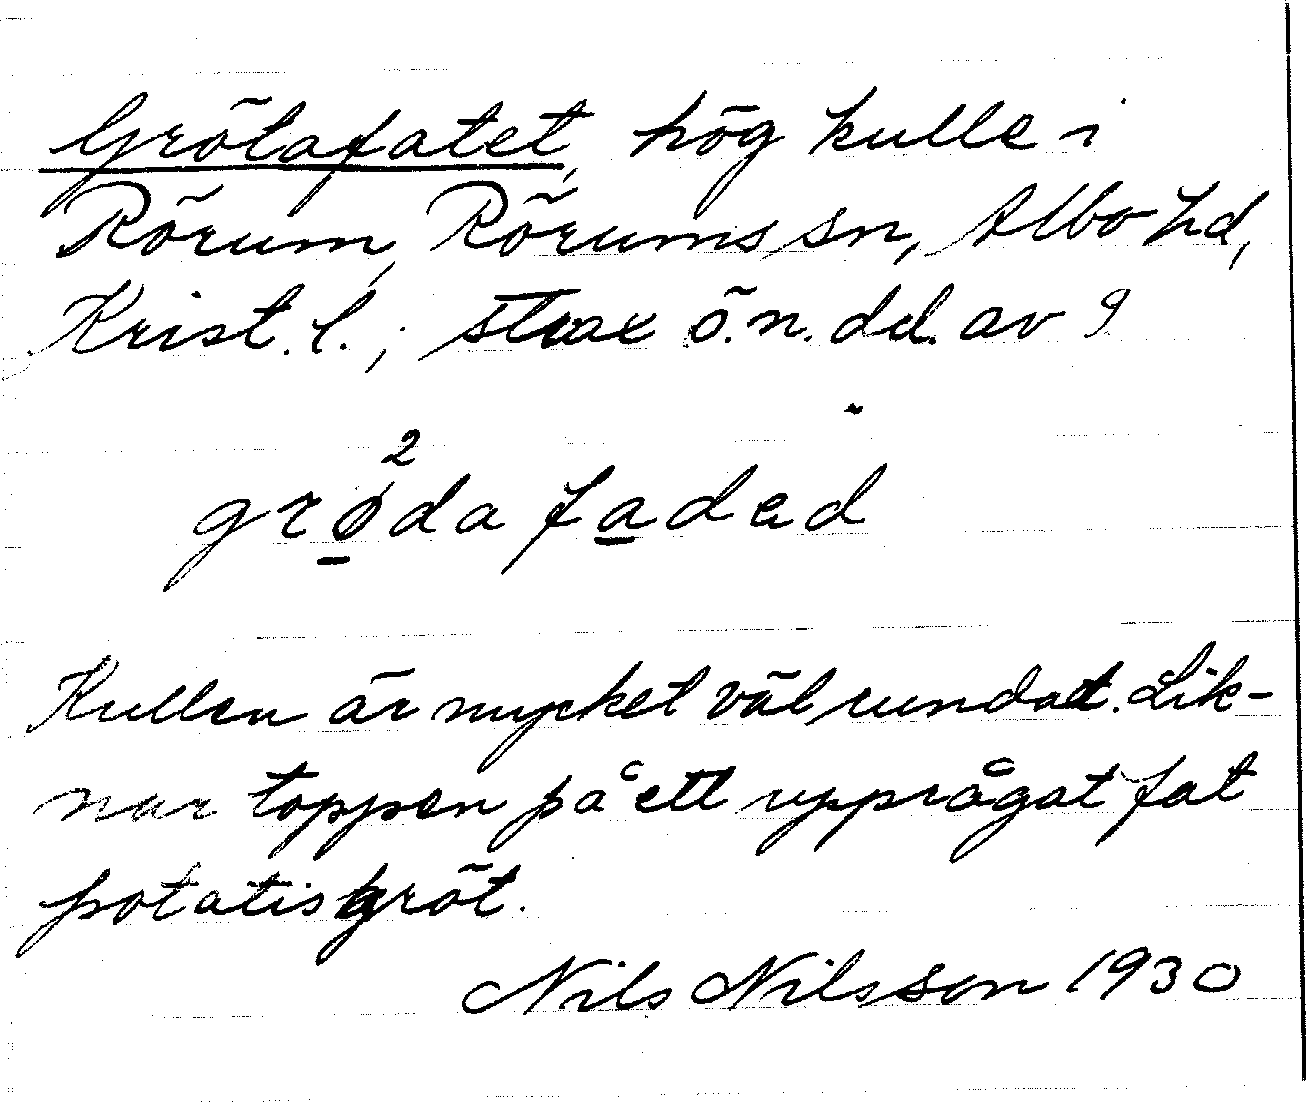 Grötafatet, hög kulle i
Rörum, Rörums sn, Albo hd,
Krist. l.; strax ö.n. del. av 9
grø²da faded
Kullen är mycket väl rundat. Lik-
nar toppen på ett upprågat fat
potatisgröt.
Nils Nilsson 1930